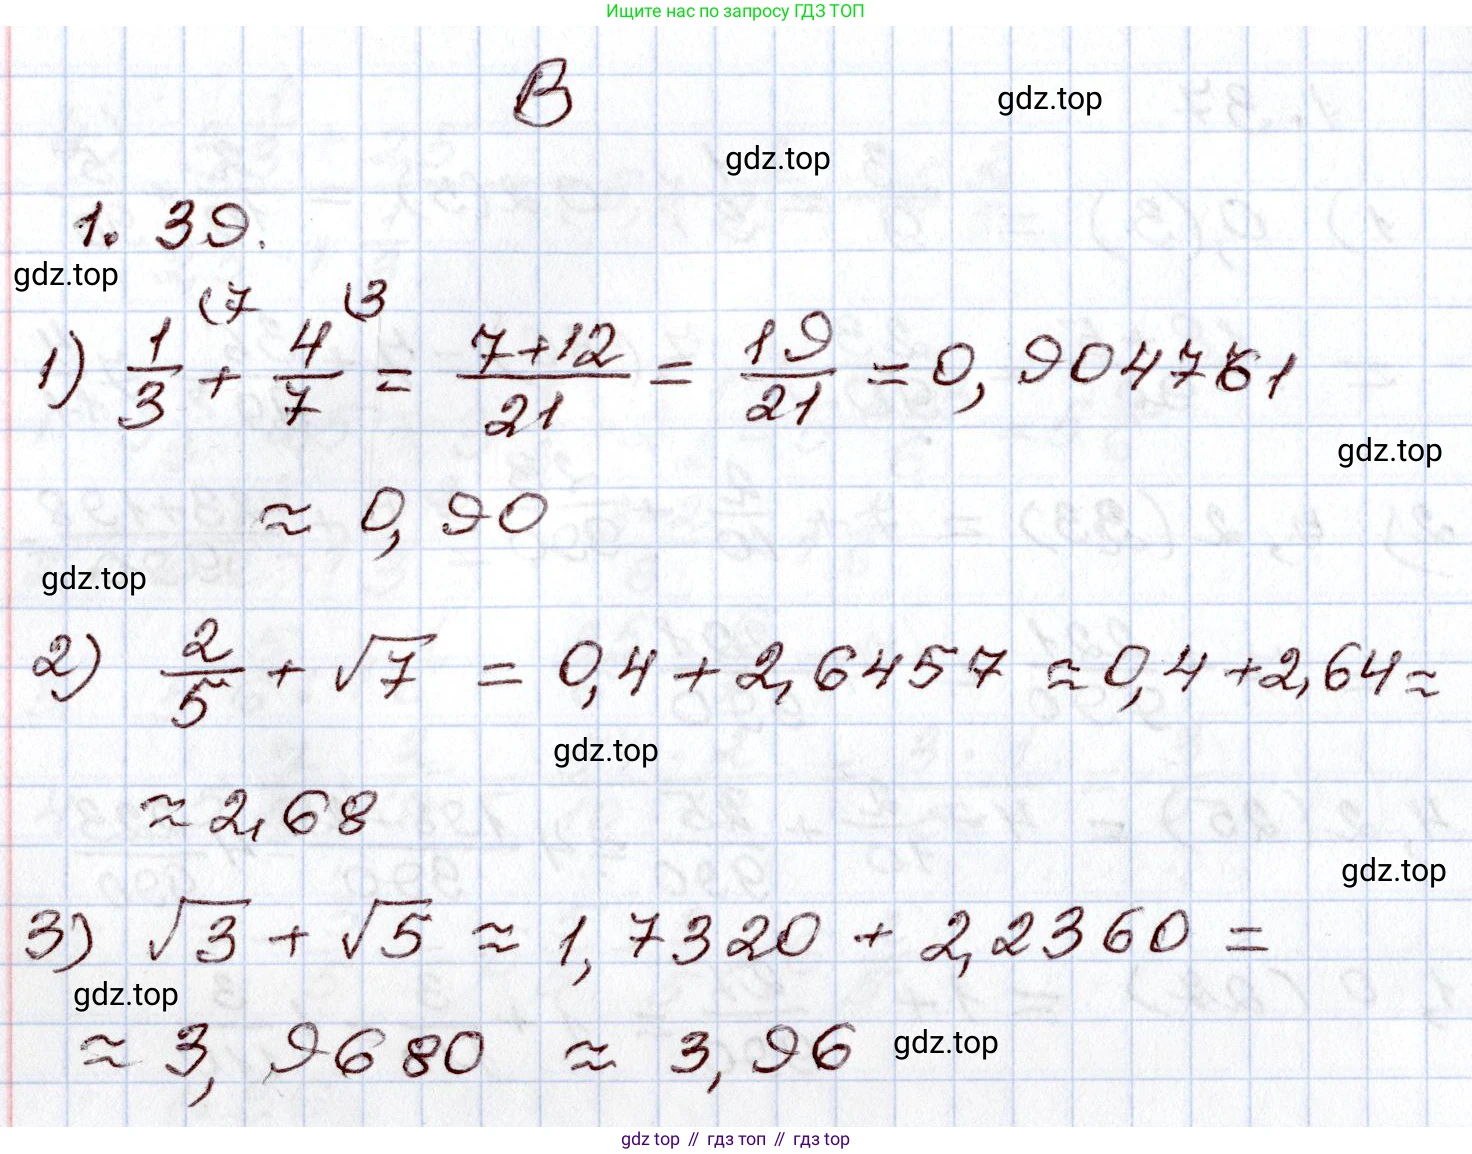 Ищите нас по запросу ГДЗ ТОП
В
gdz.top
gdz.top
1.39.
gdz.top
1) 1/3 (7 + 4/7 (3 = 7+12/21 = 19/21 = 0,904761
gdz.top
≈ 0,90
gdz.top
2) 2/5 + √7 = 0,4 + 2,6457 ≈ 0,4 + 2,64 ≈
gdz.top
≈ 2,68
gdz.top
3) √3 + √5 ≈ 1,7320 + 2,2360 =
gdz.top
≈ 3,9680 ≈ 3,96
gdz.top
gdz top // гдз топ // гдз top